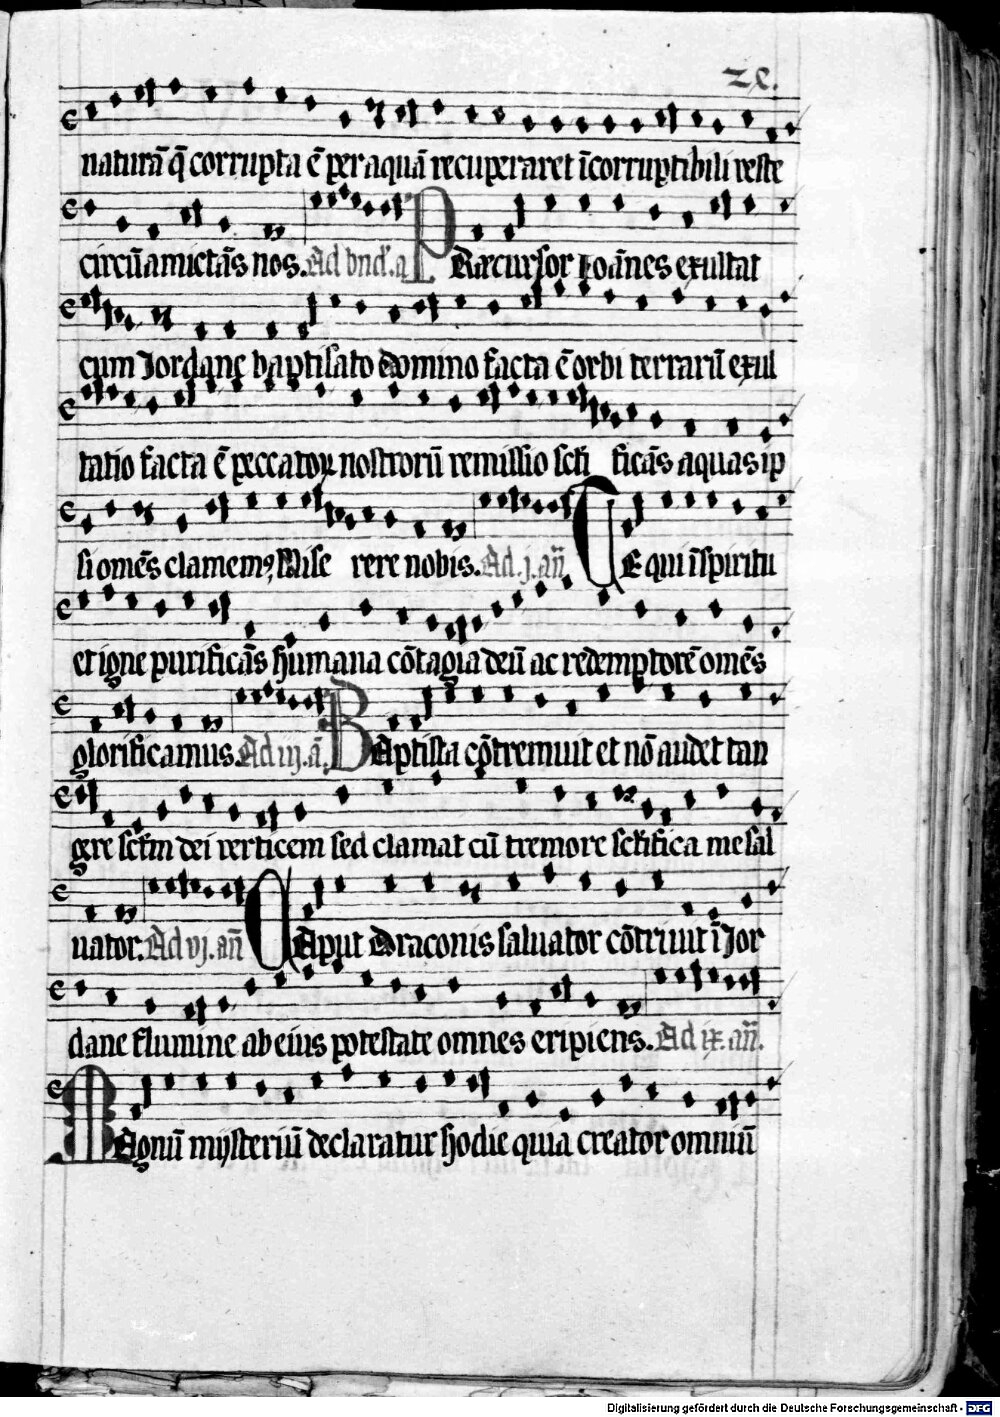 naturā q̄ corrupta ē per aquā recuperaret īcorruptibili veste
circūamictās nos. Ad bnd'. a PRæcursor ioānes exultat
cum Jordane baptisato domino facta ē orbi terrarū exul
tatio facta ē peccatoꝝ nostrorū remissio scti ficās aquas ip
si omēs clamemꝰ Mise rere nobis. Ad .j. añ TE qui ī spiritu
et igne purificās humana cōtagia deū ac redemptorē omēs
glorificamus. Ad iij. ā. BAptista cōtremuit et nō audet tan
gere sctm dei verticem sed clamat cū tremore sctifica me sal
uator. Ad vj. añ CAput draconis saluator cōtriuit ī Jor
dane flumine ab eius potestate omnes eripiens. Ad ix. añ.
MAgnū mysteriū declaratur hodie quia creator omniū
Digitalisierung gefördert durch die Deutsche Forschungsgemeinschaft - DFG